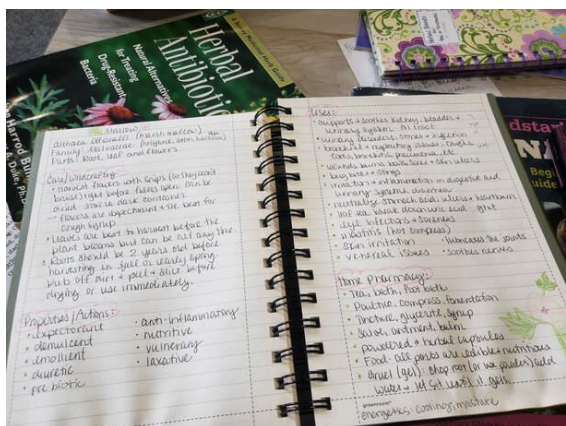 A Storey Medicinal Herb Guide
Herbal
Antibiotics
Natural Alternatives
for Treating
Drug-Resistant
Bacteria
Duke, Ph.D.
Mallow
Althaea officinalis (marshmallow)
Family: Malvaceae
Parts: Root, leaf and flowers
Care/Wildcrafting:
• Harvest flowers with snips (so they don't
bruise) right before fully open. Can be
dried. Store in dark container
- flowers are expectorant + the best for
cough syrup
• Leaves are best to harvest before the
plant blooms but can be all any time.
• Roots should be 2 years old before
harvesting in fall or early spring.
Rub off dirt + peel + slice before
drying or use immediately.
Properties/Actions:
• expectorant
• demulcent
• emollient
• diuretic
• pre biotic
• anti-inflammatory
• nutritive
• vulnerary
• laxative
Uses:
• supports + soothes kidney, bladder +
urinary system. GI tract
• urinary disorders: stones + infection
• bronchial + respiratory issues: coughs,
colds, bronchitis, pneumonia, etc
• wounds burns boils sores + skin ulcers
• bug bites + stings
• irritation + inflammation in digestive and
urinary system. diarrhea
• neutralize stomach acid. ulcers + heartburn
• eye infections
• mastitis (hot compress)
• skin irritation
• venereal issues
• lubricates the joints
• soothes nerves
Home Pharmacy:
• Tea, bath, foot bath
• Poultice, compress, fomentation
• Tincture, glycerite, syrup
• Salve, ointment, balm
• powdered + herbal capsules
• Food- all parts are edible + nutritious
• gruel (gel): chop root (or use powder) add
water + let sit until it gels
greenroom
energetics: cooling, moisture